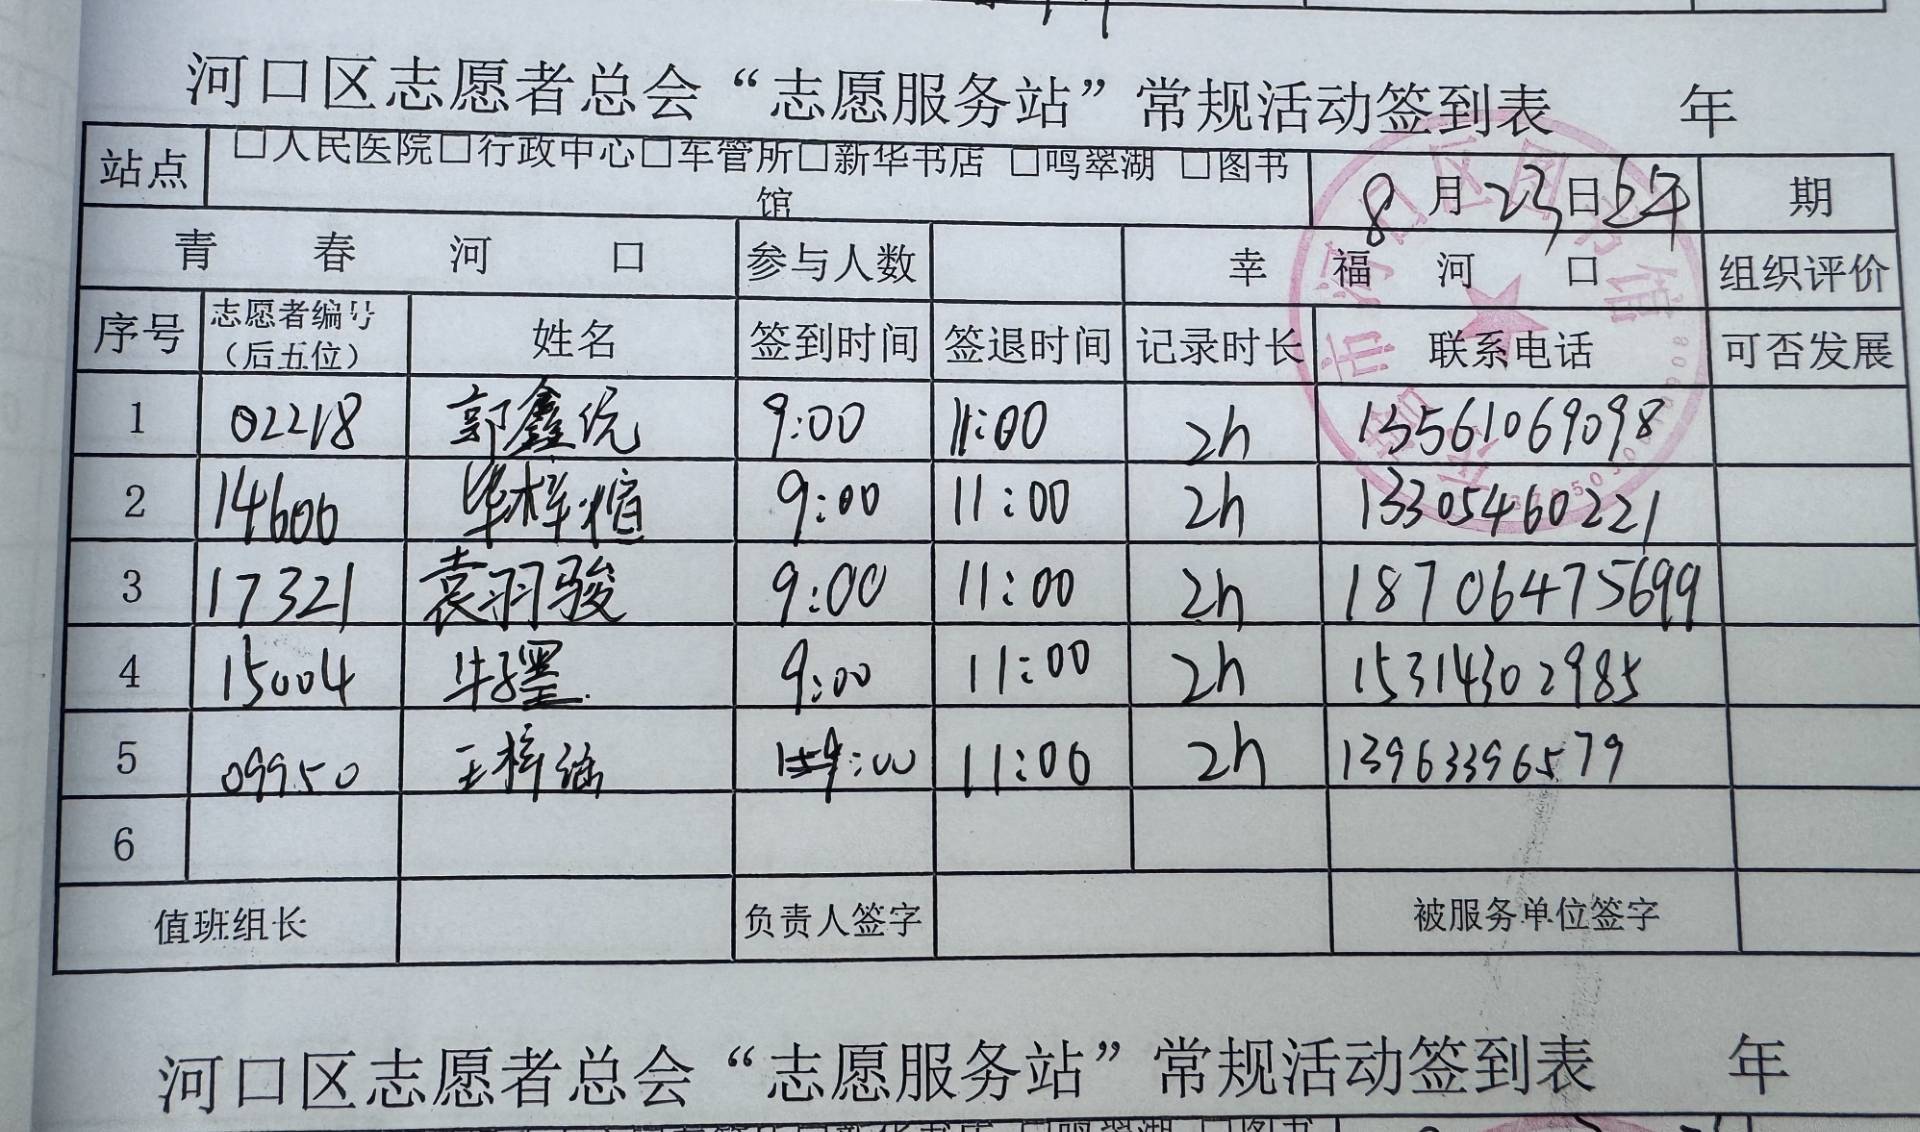 河口区志愿者总会“志愿服务站”常规活动签到表 年
站点 □人民医院□行政中心□车管所□新华书店 □鸣翠湖 □图书馆 8月23日上午 期
青春河口 参与人数 幸福河口 组织评价
序号 志愿者编号（后五位） 姓名 签到时间 签退时间 记录时长 联系电话 可否发展
1 02218 郭鑫优 9:00 11:00 2h 13561069098
2 14606 毕梓煊 9:00 11:00 2h 13305460221
3 17321 袁羽骏 9:00 11:00 2h 18706475699
4 15004 牛子墨 9:00 11:00 2h 15314302985
5 09950 王梓涵 9:00 11:00 2h 13963396579
6
值班组长 负责人签字 被服务单位签字
河口区志愿者总会“志愿服务站”常规活动签到表 年